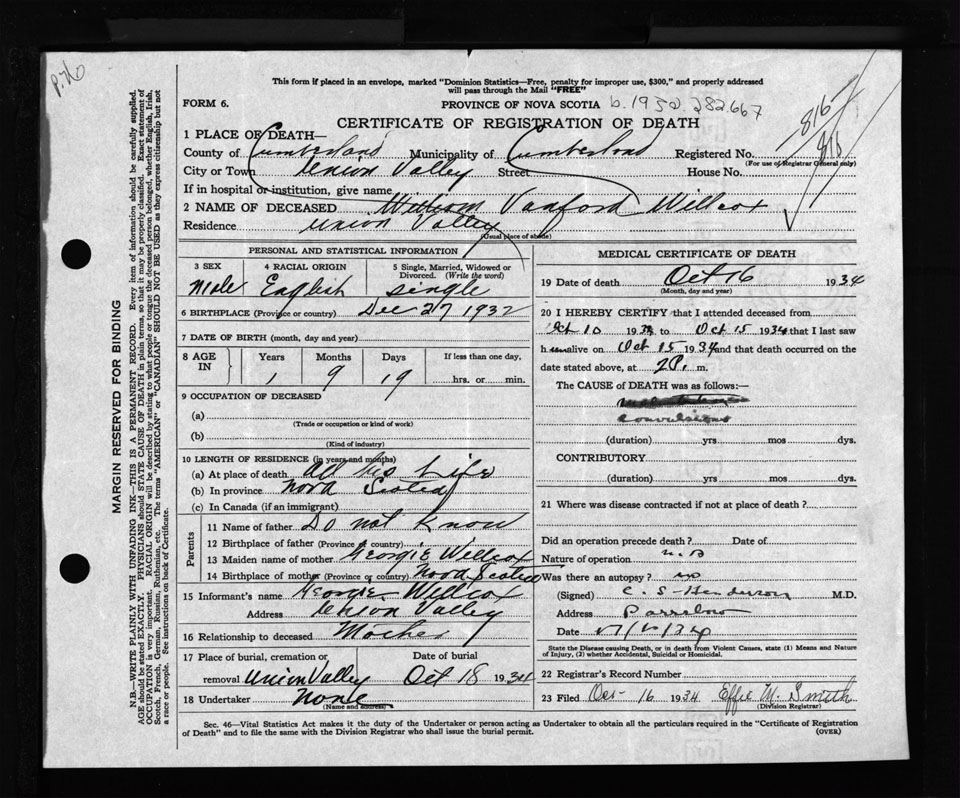 P.760
This form if placed in an envelope, marked "Dominion Statistics—Free, penalty for improper use, $300," and properly addressed
will pass through the Mail "FREE"
FORM 6.
PROVINCE OF NOVA SCOTIA b.1932.282.667
CERTIFICATE OF REGISTRATION OF DEATH
816
816
1 PLACE OF DEATH—
County of Cumberland Municipality of Cumberland Registered No.
(For use of Registrar General only)
City or Town Union Valley Street House No.
If in hospital or institution, give name
2 NAME OF DECEASED William Vanford Willcox
Residence Union Valley
(Usual place of abode)
PERSONAL AND STATISTICAL INFORMATION
3 SEX 4 RACIAL ORIGIN 5 Single, Married, Widowed or
Divorced. (Write the word)
Male English Single
6 BIRTHPLACE (Province or country) Dec 27 1932
7 DATE OF BIRTH (month, day and year)
8 AGE IN Years Months Days If less than one day,
1 9 19 hrs. or min.
9 OCCUPATION OF DECEASED
(a)
(Trade or occupation or kind of work)
(b)
(Kind of industry)
10 LENGTH OF RESIDENCE (in years and months)
(a) At place of death All his Life
(b) In province Nova Scotia
(c) In Canada (if an immigrant)
Parents
11 Name of father Do not Know
12 Birthplace of father (Province or country)
13 Maiden name of mother Georgie Willcox
14 Birthplace of mother (Province or country) Nova Scotia
15 Informant's name Georgie Willcox
Address Union Valley
16 Relationship to deceased Mother
17 Place of burial, cremation or Date of burial
removal Union Valley Oct 18 1934
18 Undertaker None
(Name and address)
MEDICAL CERTIFICATE OF DEATH
19 Date of death Oct 16 1934
(Month, day and year)
20 I HEREBY CERTIFY that I attended deceased from
Oct 10 1934 to Oct 15 1934 that I last saw
h im alive on Oct 15 1934 and that death occurred on the
date stated above, at 2 P. m.
The CAUSE of DEATH was as follows:—
Convulsions
(duration) yrs mos dys.
CONTRIBUTORY
(duration) yrs mos dys.
21 Where was disease contracted if not at place of death?
Did an operation precede death? Date of
Nature of operation no
Was there an autopsy? no
(Signed) C. S. Henderson M.D.
Address Parrsboro
Date
State the Disease causing Death, or in death from Violent Causes, state (1) Means and Nature
of Injury, (2) whether Accidental, Suicidal or Homicidal.
22 Registrar's Record Number
23 Filed Oct 16 1934 Effie M. Smith
(Division Registrar)
Sec. 46—Vital Statistics Act makes it the duty of the Undertaker or person acting as Undertaker to obtain all the particulars required in the "Certificate of Registration
of Death" and to file the same with the Division Registrar who shall issue the burial permit.
(OVER)
MARGIN RESERVED FOR BINDING
N.B.—WRITE PLAINLY WITH UNFADING INK—THIS IS A PERMANENT RECORD. Every item of information should be carefully supplied.
AGE should be stated EXACTLY. PHYSICIANS should STATE CAUSE OF DEATH in plain terms, so that it may be properly classified. Exact statement of
OCCUPATION is very important. RACIAL ORIGIN will be described by stating to what people or tongue the deceased person belonged, whether English, Irish,
Scotch, French, German, Russian, Ruthenian, etc. The terms "AMERICAN" or "CANADIAN" SHOULD NOT BE USED as they express citizenship but not
a race or people. See instructions on back of Certificate.